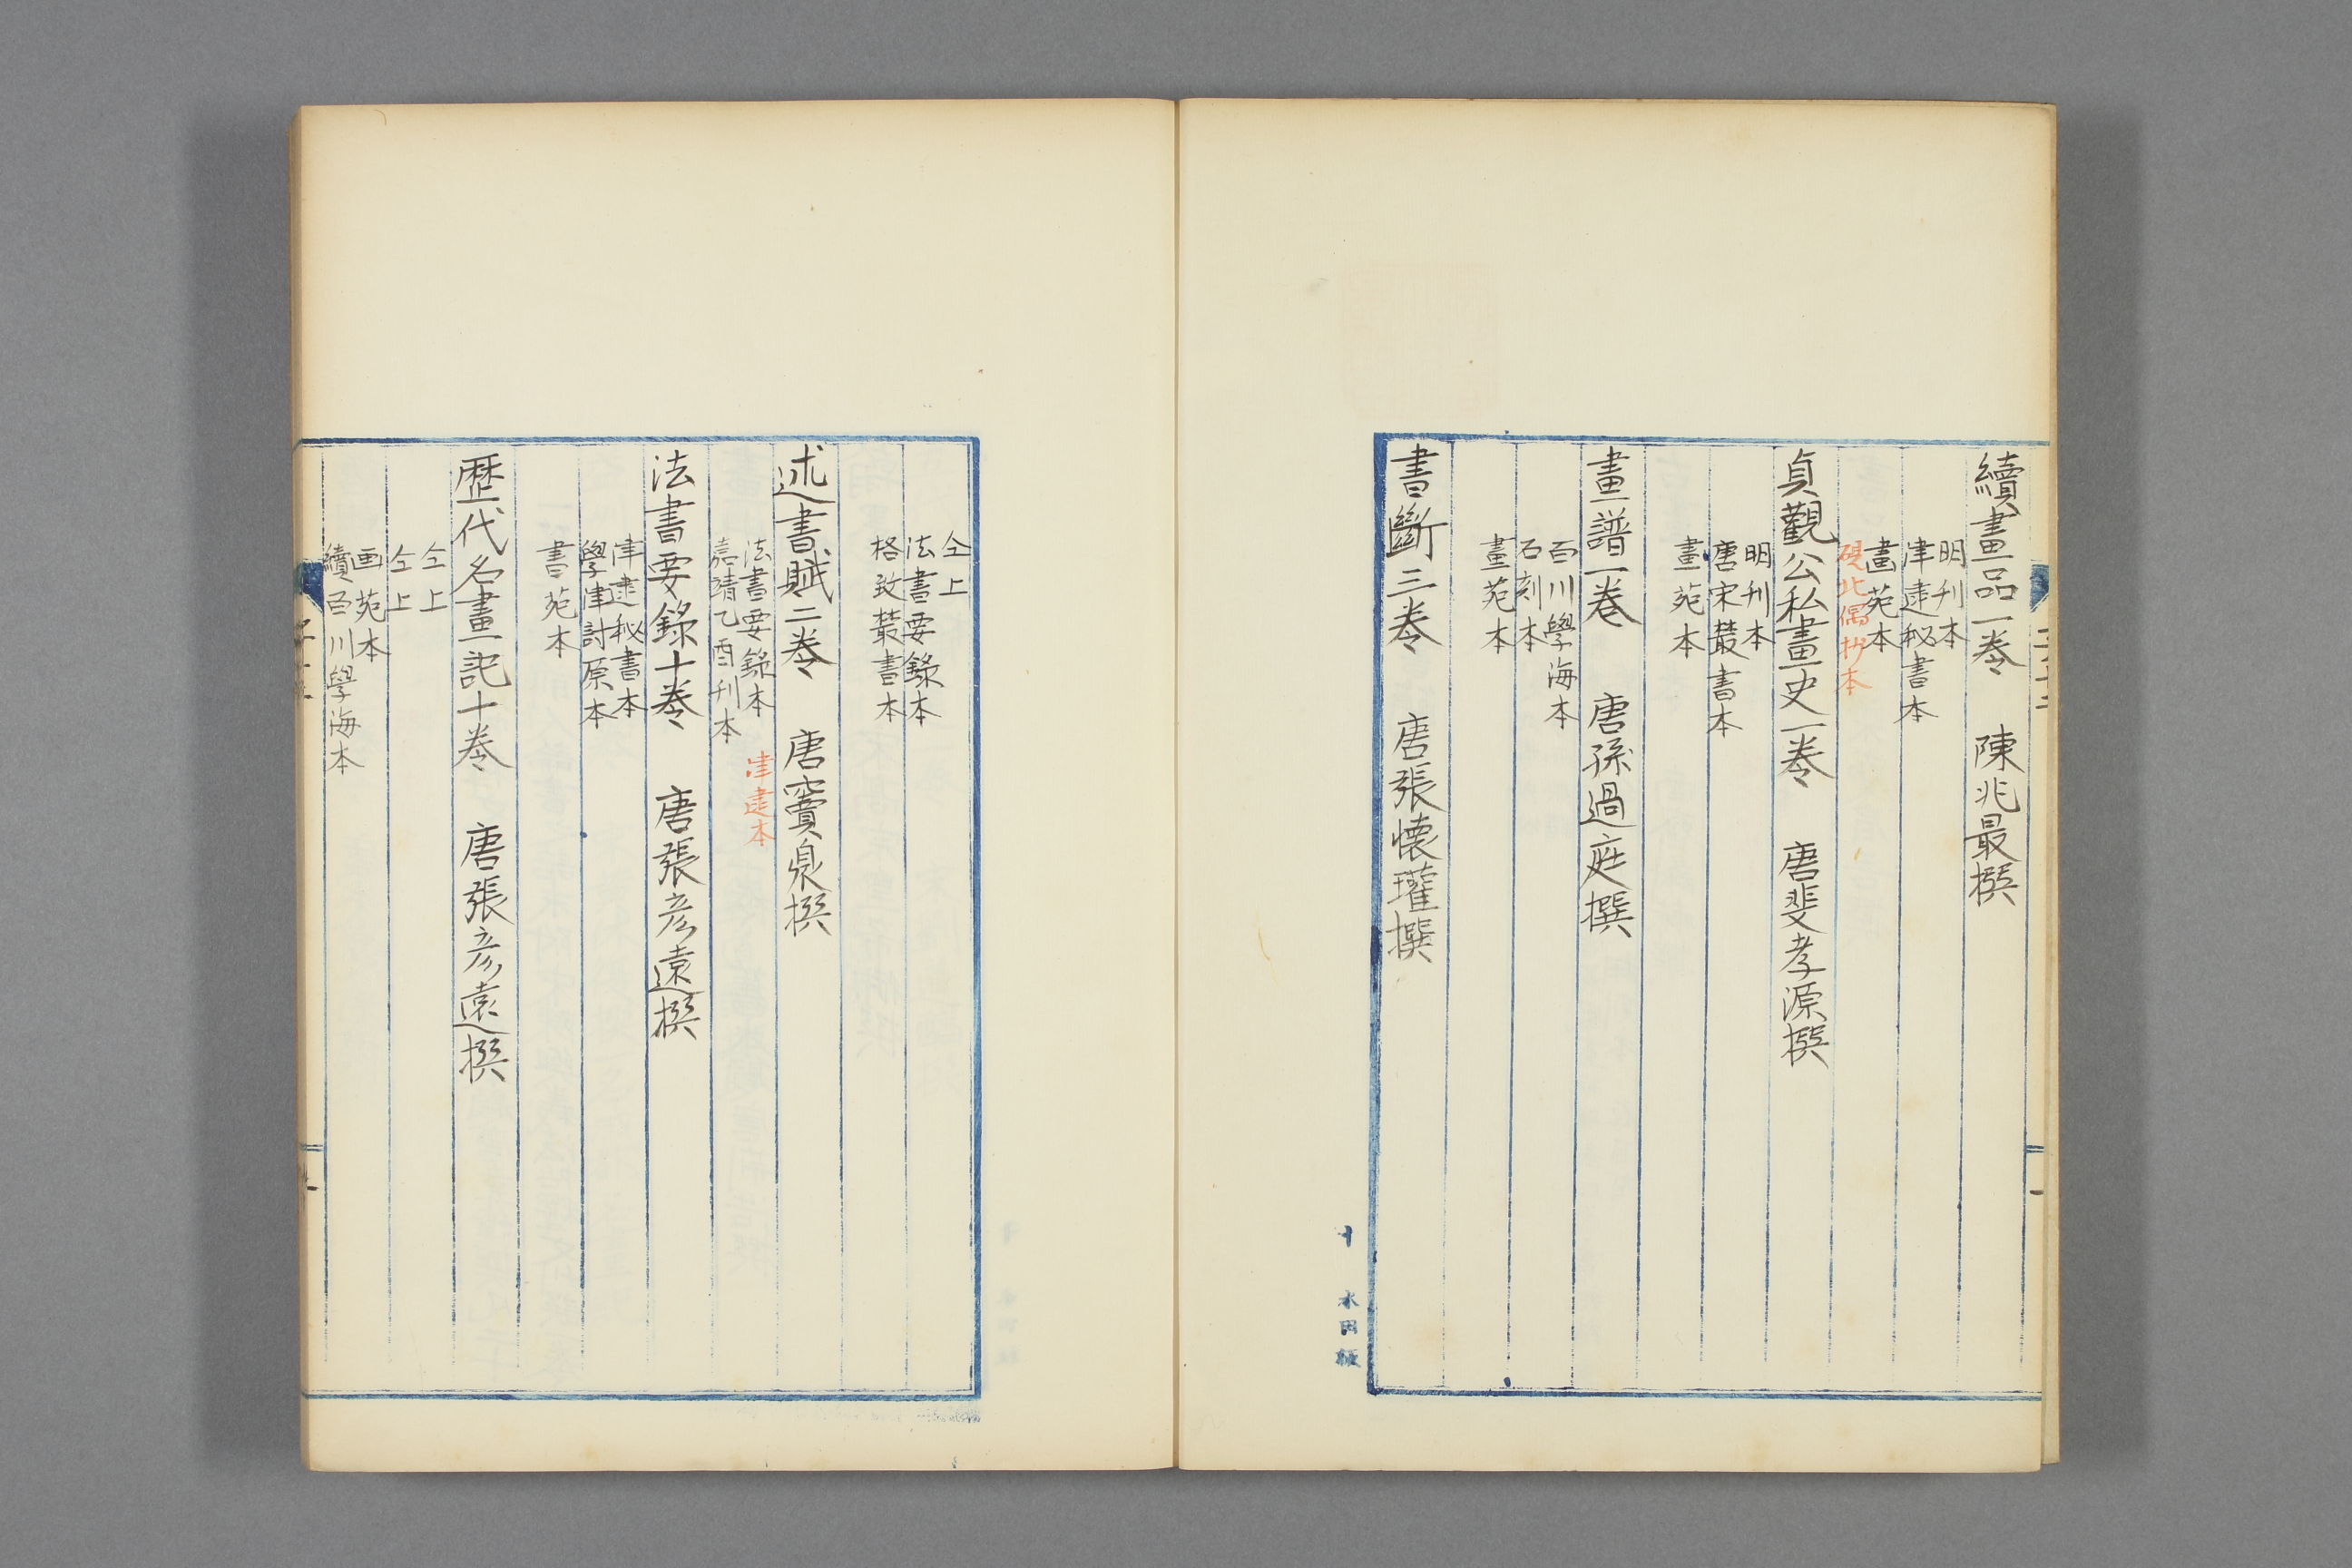 續畫品一卷　陳兆最撰
明刊本
津逮秘書本
畫苑本
硯北偶抄本
貞觀公私畫史一卷　唐斐孝源撰
明刊本
唐宋叢書本
畫苑本
畫譜一卷　唐孫過庭撰
百川學海本
石刻本
畫苑本
書斷三卷　唐張懷瓘撰
十　水田級
仝上
法書要錄本
格致叢書本
述書賦二卷　唐竇臮撰
法書要錄本　津逮本
嘉靖乙酉刊本
法書要錄十卷　唐張彥遠撰
津逮秘書本
學津討原本
書苑本
歷代名畫記十卷　唐張彥遠撰
仝上
仝上
画苑本
續百川學海本